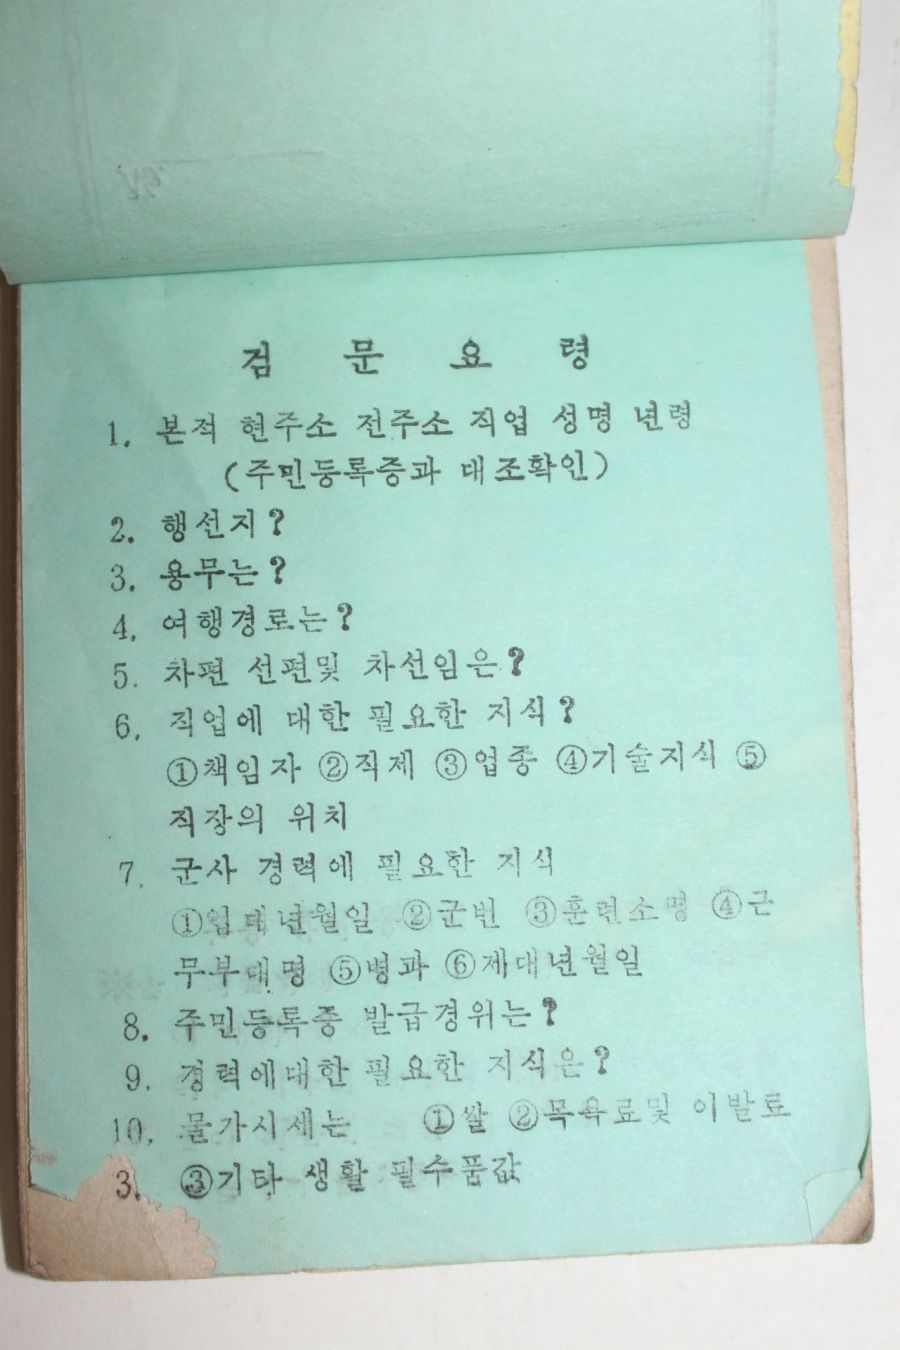 검 문 요 령
1. 본적 현주소 전주소 직업 성명 년령
(주민등록증과 대조확인)
2. 행선지?
3. 용무는?
4. 여행경로는?
5. 차편 선편및 차선임은?
6. 직업에 대한 필요한 지식?
①책임자 ②직제 ③업종 ④기술지식 ⑤
직장의 위치
7. 군사 경력에 필요한 지식
①입대년월일 ②군번 ③훈련소명 ④근
무부대명 ⑤병과 ⑥제대년월일
8. 주민등록증 발급경위는?
9. 경력에대한 필요한 지식은?
10. 물가시세는 ①쌀 ②목욕료및 이발료
3. ③기타 생활 필수품값